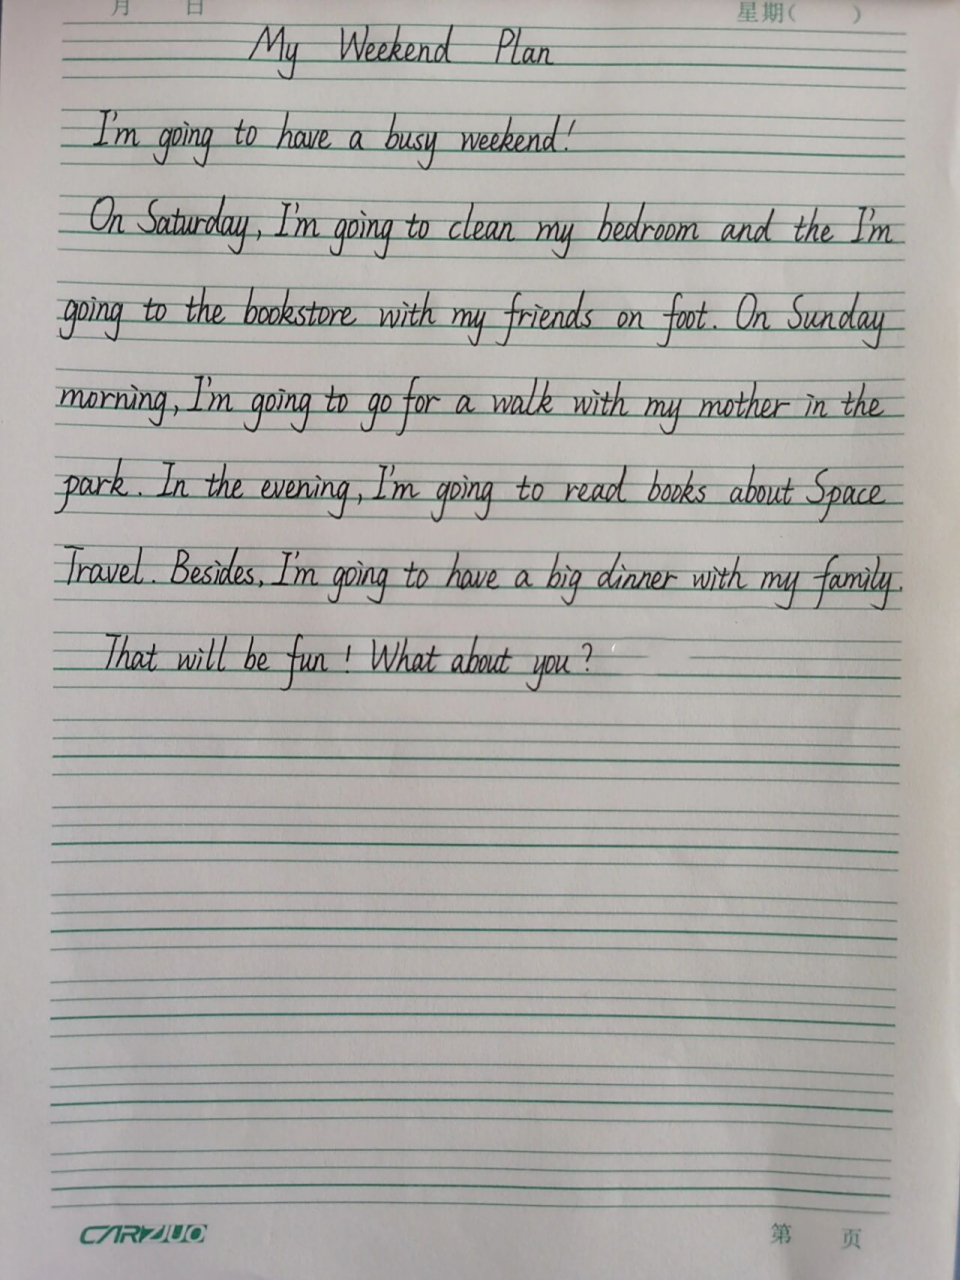 月 日 星期( )
My Weekend Plan
I'm going to have a busy weekend!
On Saturday, I'm going to clean my bedroom and the I'm
going to the bookstore with my friends on foot. On Sunday
morning, I'm going to go for a walk with my mother in the
park. In the evening, I'm going to read books about Space
Travel. Besides, I'm going to have a big dinner with my family.
That will be fun! What about you?
第 页